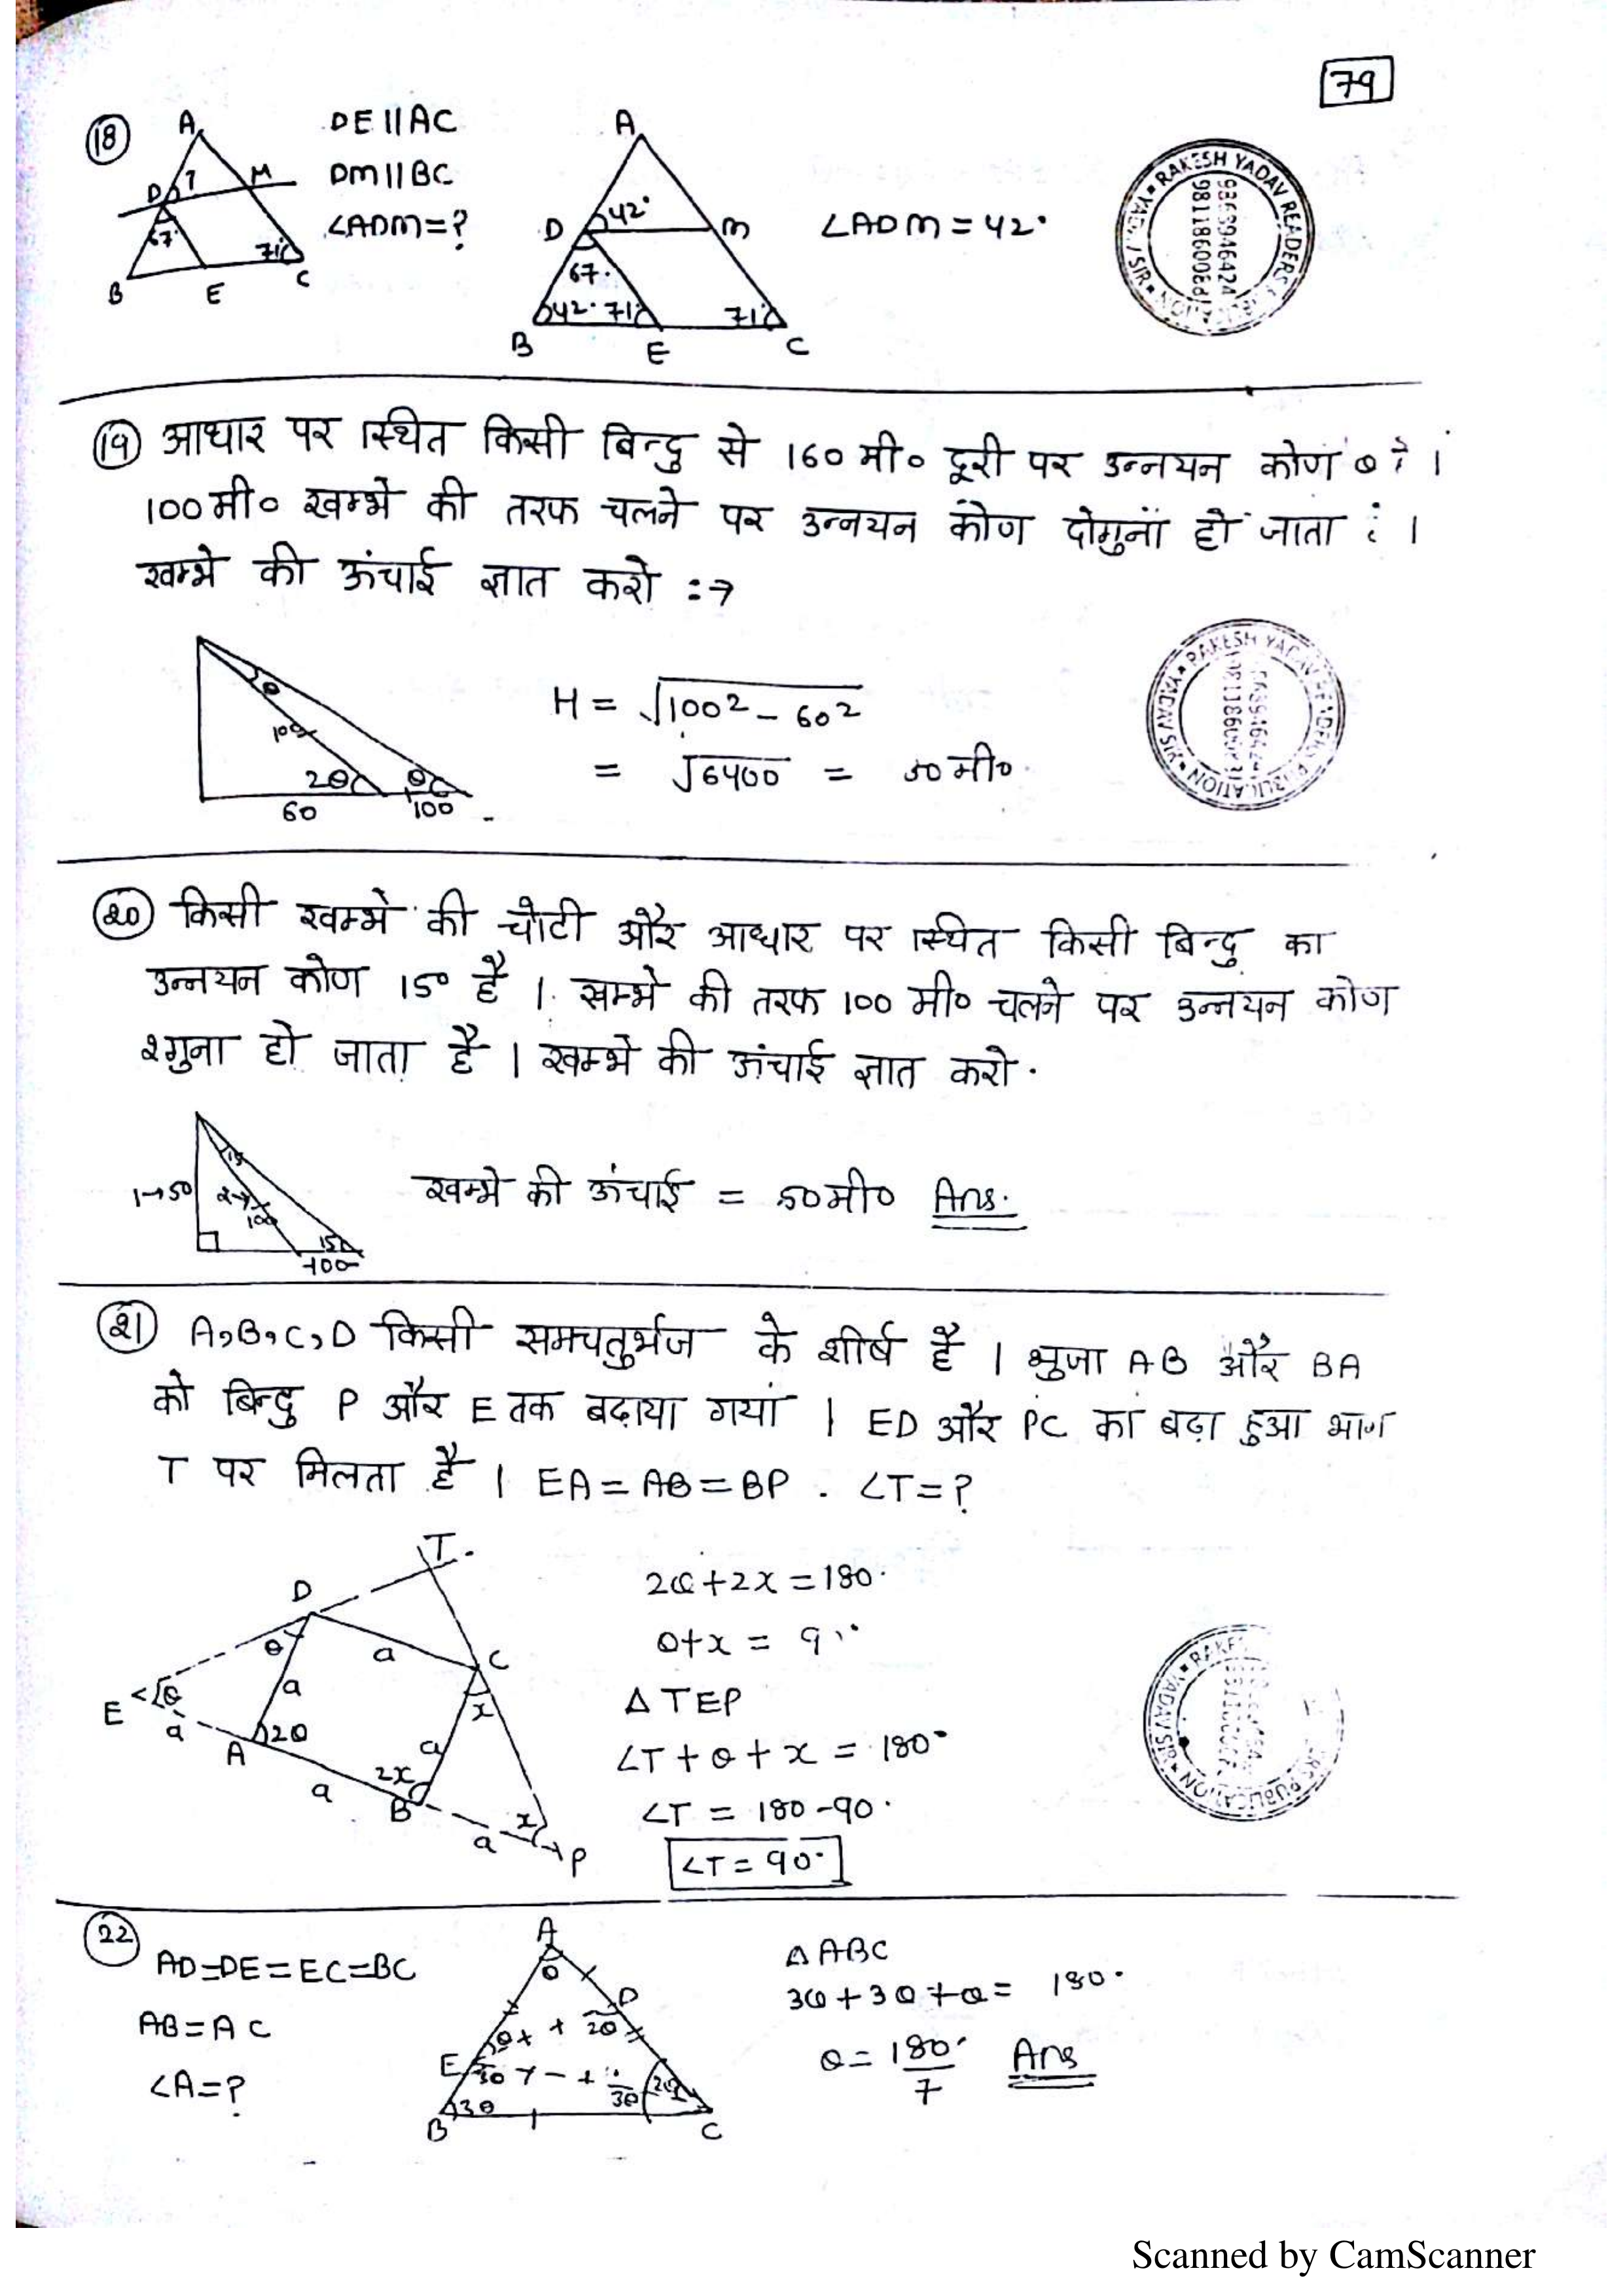 79
18
DE||AC
DM||BC
∠ADM=?
A
D
?
M
67°
71°
B
E
C
A
D
42°
m
67°
42° 71°
71°
B
E
C
∠ADM = 42°
RAKESH YADAV READERS
9868946424
9811860069
19 आधार पर स्थित किसी बिन्दु से 160 मी० दूरी पर उन्नयन कोण θ है ।
100 मी० खम्भे की तरफ चलने पर उन्नयन कोण दोगुना हो जाता है ।
खम्भे की ऊंचाई ज्ञात करो :→
θ
100
2θ
θ
60
100
H = √100² - 60²
= √6400 = 50 मी०
RAKESH YADAV READERS PUBLICATION
20 किसी खम्भे की चोटी और आधार पर स्थित किसी बिन्दु का
उन्नयन कोण 15° है । खम्भे की तरफ 100 मी० चलने पर उन्नयन कोण
२गुना हो जाता है । खम्भे की ऊंचाई ज्ञात करो.
1→50
15
2→
100
15
100
खम्भे की ऊंचाई = 50 मी० Ans.
21 A,B,C,D किसी समचतुर्भुज के शीर्ष है । भुजा AB और BA
को बिन्दु P और E तक बढ़ाया गया । ED और PC का बढ़ा हुआ भाग
T पर मिलता है । EA = AB = BP . ∠T = ?
T
D
θ
a
C
a
x
E
θ
a
A
2θ
a
a
2x
B
a
x
P
2θ+2x = 180°
θ+x = 90°
△TEP
∠T + θ + x = 180°
∠T = 180-90°
∠T = 90°
22
AD=DE=EC=BC
AB=AC
∠A=?
A
θ
D
2θ
θ
E
3θ
3θ
2θ
3θ
B
C
△ABC
3θ+3θ+θ = 180°
θ = 180°/7 Ans
Scanned by CamScanner